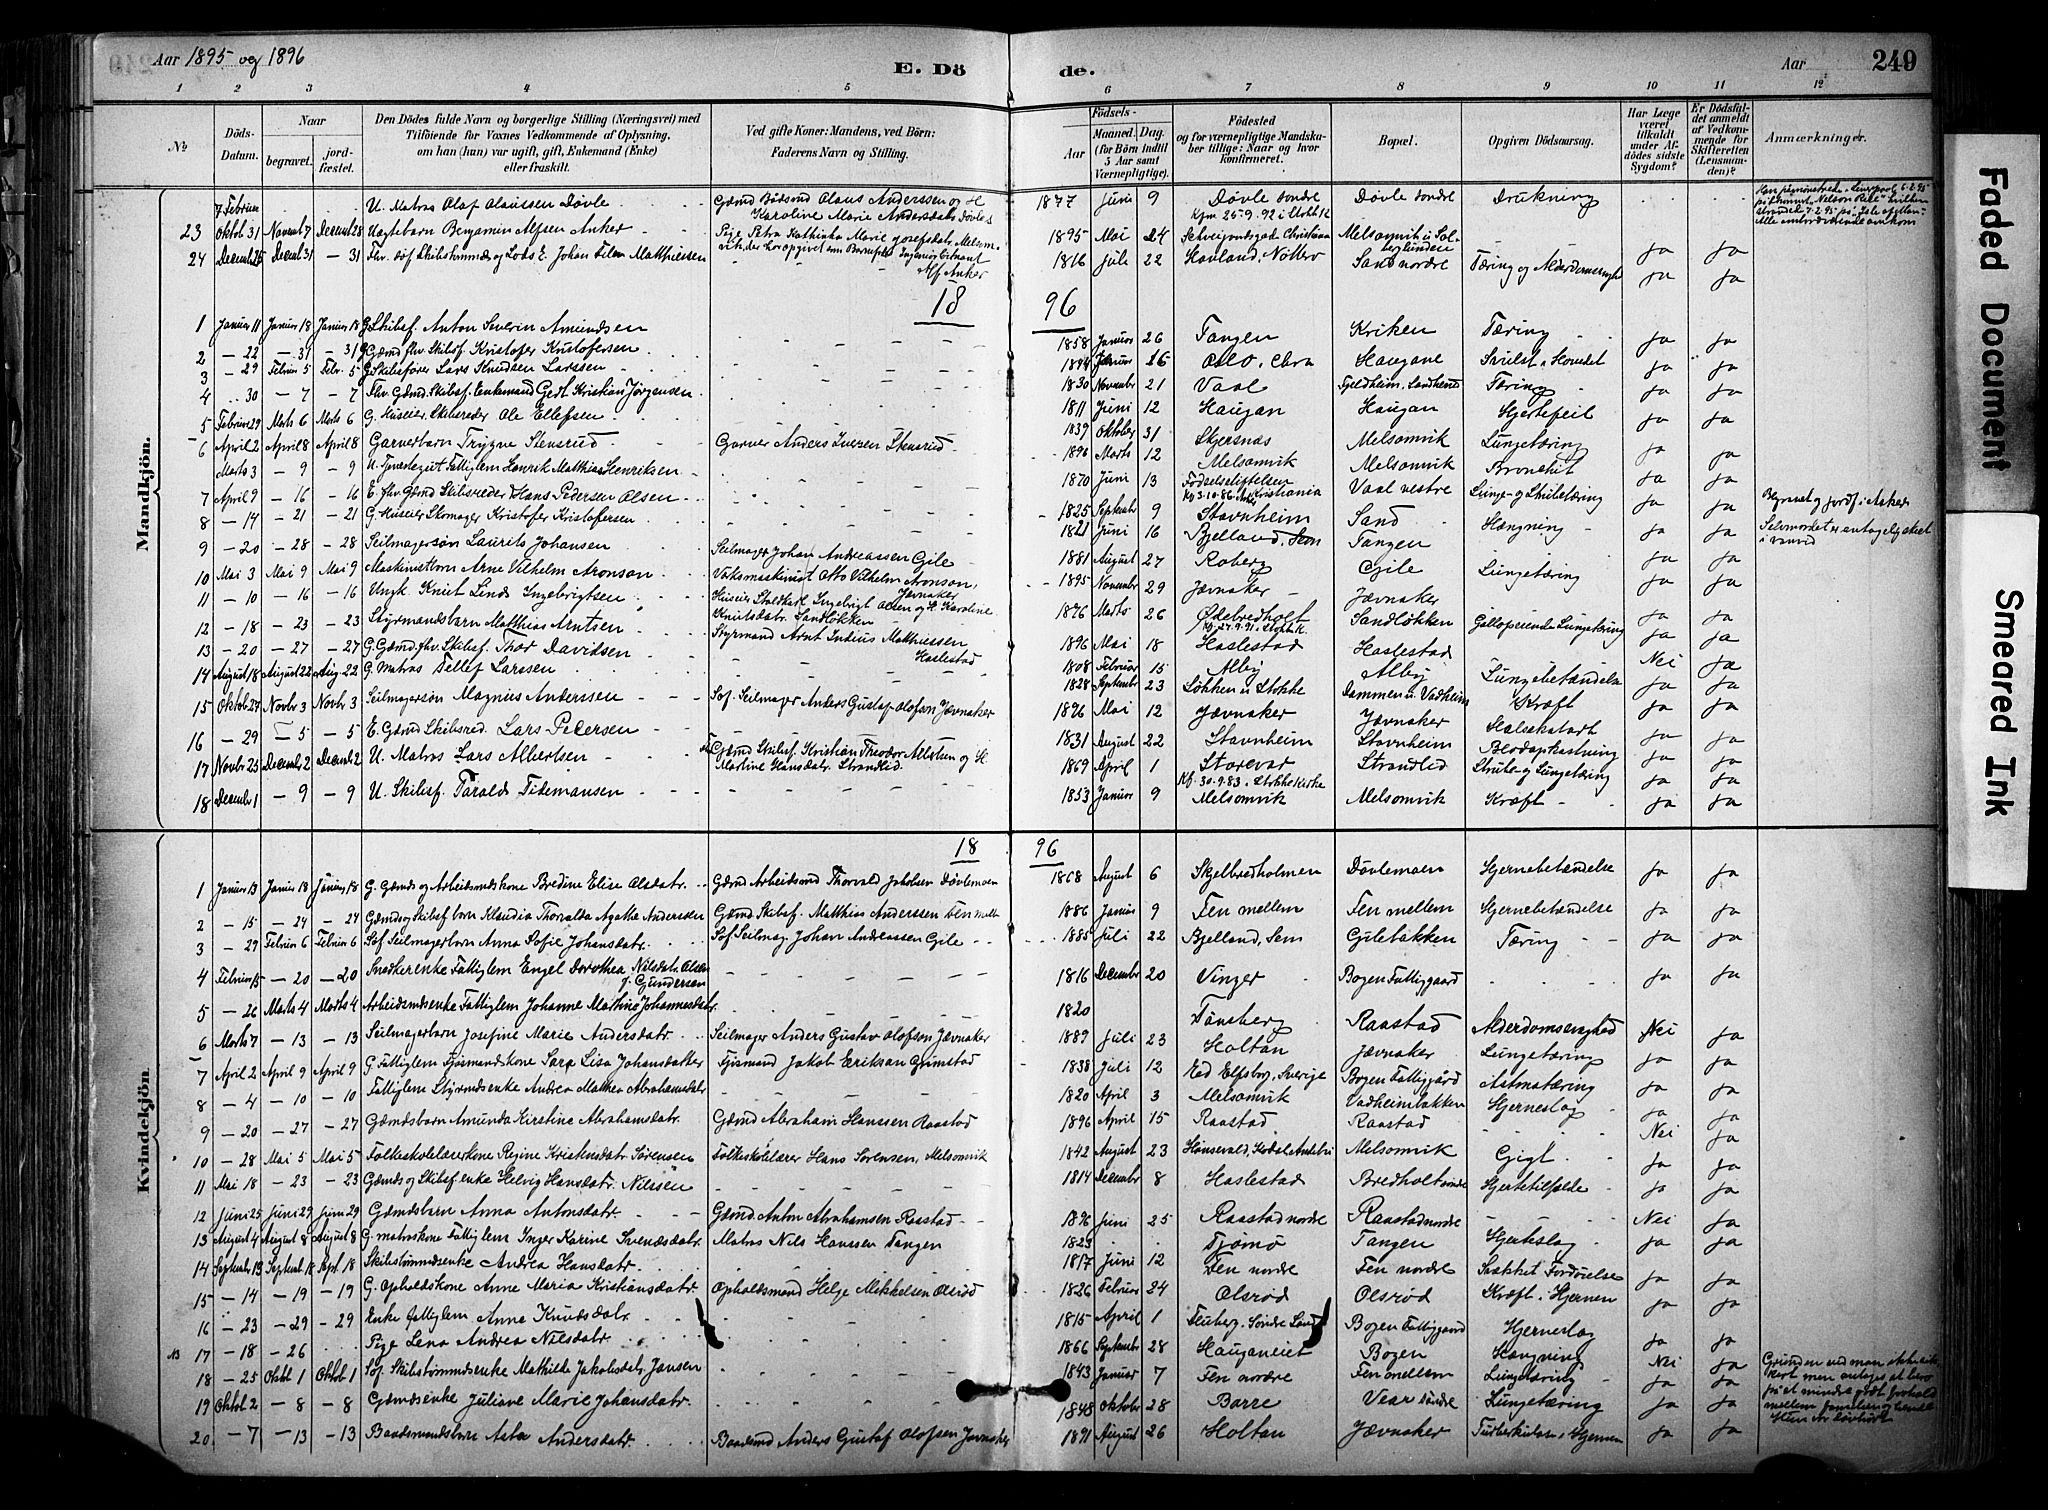 Aar 1895 og 1896
E. Döde.
Aar
249
1 2 3 4 5 6 7 8 9 10 11 12
No
Döds-Datum.
Naar
begravet.
jordfæstet.
Den Dödes fulde Navn og borgerlige Stilling (Næringsvei) med Tilföiende for Voxnes Vedkommende af Oplysning, om han (hun) var ugift, gift, Enkemand (Enke) eller fraskilt.
Ved gifte Koner: Mandens, ved Börn: Faderens Navn og Stilling.
Födsels-
Aar
Maaned. Dag.
(for Börn indtil 5 Aar samt Værnepligtige).
Födested og for værnepligtige Mandskaber tillige: Naar og hvor konfirmeret.
Bopæl.
Opgiven Dödsaarsag.
Har Læge været tilkaldt under Afdödes sidste Sygdom?
Er Dödsfaldet anmeldt af Vedkommende for Skifteretten (Lensmanden)?
Anmærkninger.
Mandkjön.
7 Februar U. Matros Olaf Olaussen Døvle Gåmd Bødsmd Olaus Anderssen og H. Karoline Marie Andersdatr Døvle 1877 Juni 9 Døvle søndre Kfm 25-9-92 i Stokke K Døvle søndre Drukning
23 Oktob 31 Novembr 7 Decembr 28 Uægtebarn Benjamin Alfsen Anker Pige Petra Kathinka Marie Josefsdatr Melsom 1895 Mai 24 Christiania Melsomvik Ja Ja
24 Decembr 25 Decembr 31 - 31 Alf Anker 1816 Juli 22 Havland, Nøtterø Sand nordre Tæring og Ja Ja
18 96
1 Januar 11 Januar 18 Januar 18 G. Skibsf. Anton Severin Amundsen - - - 1858 Januar 26 Tangen Kriken Tæring Ja Ja
2 - 22 - 31 - 31 Gåmd fhv. Skibsf Kristofer Kristofersen - - - 1844 Januar 16 Oslo, Chra Haugane Svulst i Hovedet Ja Ja
3 - 29 Februar 5 Febr. 5 G. Skibsfører Lars Knudsen Larssen - - - 1830 November 21 Vaal Fjeldheim, Tæring Ja Ja
4 - 30 - 7 - 7 Fhv. Gåmd. Skibsf. Enkemand Gedt Kristian Jørgensen - - - 1811 Juni 12 Haugan Haugan Hjertefeil Ja Ja
5 Februar 29 Marts 6 Marts 6 G. Huseier, Skibsreder Ole Ellefsen - - - 1839 Oktober 31 Skjersnæs Melsomvik Lungetæring Ja Ja
6 April 2 April 8 April 8 Garverbarn Trygve Stensrud Garver Anders Iversen Stensrud 1896 Marts 12 Melsomvik Melsomvik Bronchit Ja Ja
Marts 3 - 9 - 9 U. Tjenestegut Fattiglem Henrik Matthias Henriksen - - - 1870 Juni 13 Fødselsstiftelsen Kristiania Vaal vestre Lunge- og Strubetæring Ja Ja Begravet og jordf. i Asker
7 April 9 - 16 - 16 E. fhv. Gåmd Skibsreder Hans Pedersen Olsen - - - 1825 Septembr 9 Stavnheim Sand Hængning Ja Ja Selvmordet er antagelig sket i vanvid
8 - 14 - 21 - 21 G. Huseier Skomager Kristofer Kristofersen - - - 1821 Juni 16 Bjelland, Sem Tangen Ja Ja
9 - 20 - 28 - 28 Seilmagersøn Laurits Johansen Seilmager Johan Andreassen Gile 1881 August 27 Roberg Gile Lungetæring Ja Ja
10 Mai 3 Mai 9 Mai 9 Maskinistbarn Arne Vilhelm Aronson Vaksmaskinist Otto Vilhelm Aronson, Jævnaker 1895 November 29 Jævnaker Jævnaker Ja Ja
11 - 10 - 16 - 16 Ungk. Knut Linds Ingebrigtsen Huseier Staldkarl Ingebrigt Olsen og H. Karoline Knutsdatr Sandløkken 1876 Marts 26 Ødebredholt Kf. 27-9-91 Stokke K. Sandløkken Galloperende Lungetæring Ja Ja
12 - 18 - 23 - 23 Styrmandsbarn Matthias Arntsen Styrmand Arnt Indius Matthiessen Haslestad 1896 Mai 18 Haslestad Haslestad Ja Ja
13 - 20 - 27 - 27 G. Gåmd. fhv. Skibsf. Thor Davidsen - - - 1808 Februar 15 Alby Alby Nei Ja
14 August 18 August 22 Aug. 22 G. Matros Tellef Larssen - - - 1828 Septembr 23 Løkken i Stokke Dammen u. Vadheim Lungebetændelse Ja Ja
15 Oktob 27 Novbr 3 Novbr 3 Seilmagersøn Magnus Anderssen Sof. Seilmager Anders Gustaf Olofson Jævnaker 1896 Mai 12 Jævnaker Jævnaker Kræft Ja Ja
16 - 29 - 5 - 5 E. Gåmd Skibsred. Lars Pedersen - - - 1831 August 22 Stavnheim Stavnheim Halsekatarh Ja Ja
17 Novbr 25 Decembr 2 Decembr 2 U. Matros Lars Albertsen Gåmd Skibsf. Kristian Theodor Albertsen og H. Martine Hansdatr. Strandlid. 1869 April 1 Storevar Kf. 30-9-83, Stokke Kirke Strandlid Blodopkastning Strube- og Lungetæring Ja Ja
18 Decembr 1 - 9 - 9 U. Skibsf. Tarald Tidemansen - - - 1853 Januar 9 Melsomvik Melsomvik Kræft Ja Ja
Kvindekjön.
18 96
1 Januar 13 Januar 18 Januar 18 G. Gåmds og Arbeidsmdskone Bredine Elise Olsdatr. Gåmd Arbeidsmd Thorvald Jakobsen Døvlemoen 1868 August 6 Skjelbredholmen Døvlemoen Hjernebetændelse Ja Ja
2 - 15 - 24 - 24 Gåmds og Skibsf barn Klaudia Thorvalda Agathe Anderssen Gåmd. Skibsf. Matthias Anderssen Fen mell. 1886 Januar 9 Fen mellem Fen mellem Hjernebetændelse Ja Ja
3 - 29 Februar 6 Februar 6 Sof Seilmagerbarn Anna Sofie Johansdatr. Sof Seilmag. Johan Andreassen Gile 1885 Juli 22 Bjelland, Sem Gilebakken Tæring Ja Ja
4 Februar 15 - 20 - 20 Snedkerenke Fattiglem Engel Dorothea Nilsdatr. Olsen f. Gundersen - - - 1816 Decembr 20 Vinger Bogen Fattiggaard Ja Ja
5 - 26 Marts 4 Marts 4 Arbeidsmdsenke Fattiglem Johanne Martine Johannesdatr. - - - 1820 Tønsberg Raastad Alderdomssvaghed Nei Ja
6 Marts 7 - 13 - 13 Seilmagerbarn Josefine Marie Andersdatr. Seilmager Anders Gustav Olofson Jævnaker 1889 Juli 23 Holtan Jævnaker Lungetæring Ja Ja
7 April 2 April 9 April 9 G. Fattiglem Fjøsmandskone Sara Lisa Johansdatter Fjøsmand Jakob Eriksen Grimstad 1838 Juli 12 Ed Elfsborg, Sverige Bogen Fattiggård Astmatæring Ja Ja
8 - 4 - 10 - 10 Fattiglem Styrmdsenke Andrea Mathea Abrahamsdatr. - - - 1820 April 3 Melsomvik Vadheimbakken Hjerneslag Ja Ja
9 - 20 - 27 - 27 Gåmdsbarn Amunda Kirstine Abrahamsdatr. Gåmd Abraham Hanssen Raastad 1896 April 15 Raastad Raastad Nei Ja
10 - 28 Mai 5 Mai 5 Folkeskolelærerkone Regine Kristensdatr Sørensen Folkeskolelærer Hans Sørensen, Melsomvik 1842 August 23 Melsomvik Gigt Ja Ja
11 Mai 18 - 23 - 23 Gåmds og Skibsf enke Helvig Hansdatr. Nilssen - - - 1814 Decembr 8 Haslestad Bredholt søndre Hjertetilfælde Ja Ja
12 Juni 25 Juni 29 Juni 29 Gåmdsbarn Anna Antonsdatr. Gåmd. Anton Abrahamsen Raastad 1896 Juni 25 Raastad nordre Raastad nordre Nei Ja
13 August 4 August 8 August 8 G. matroskone Fattiglem Inger Karine Svenesdatr. Matros Nils Hanssen Tangen 1823 Tjømø Tangen Hjerteslag Ja Ja
14 Septembr 13 Septembr 18 Sept. 18 Skibstimmdsenke Andrea Hansdatr. - - - 1817 Juni 12 Fen nordre Fen nordre Svækket Fordøielse Ja Ja
15 - 14 - 19 - 19 G. Opholdskone Anne Maria Kristiansdatr. Opholdsmand Helge Mikkelsen Olsrød 1826 Februar 24 Olsrød Olsrød Kræft i Hjernen Ja Ja
16 - 23 - 29 - 29 Enke fattiglem Anne Knudsdatr. - - - 1815 April 1 Fluberg, Søndre Land Bogen Fattiggaard Hjerneslag Ja Ja
NB 17 - 18 - 26 Pige Lena Andrea Nilsdatr. - - - 1866 Septembr 28 Hauganeiet Bogen Hængning Nei Ja
18 - 25 Oktob 1 Oktob 1 Sof. Skibstimmdsenke Mathilde Jakobsdatr Jansen - - - 1843 Januar 7 Fen nordre Fen mellem Lungetæring Ja Ja
19 Oktob 2 - 8 - 8 Gåmdsenke Juliane Marie Johansdatr. - - - 1848 Oktobr 28 Borre Vear søndre Lungetæring Ja Ja
20 - 7 - 13 - 13 Baadsmandsbarn Asta Andersdatr. Baadsmd Anders Gustaf Olofsen Jævnaker 1891 August 26 Holtan Jævnaker Tuberkulose i Hjernen Ja Ja
Faded Document
Smeared Ink